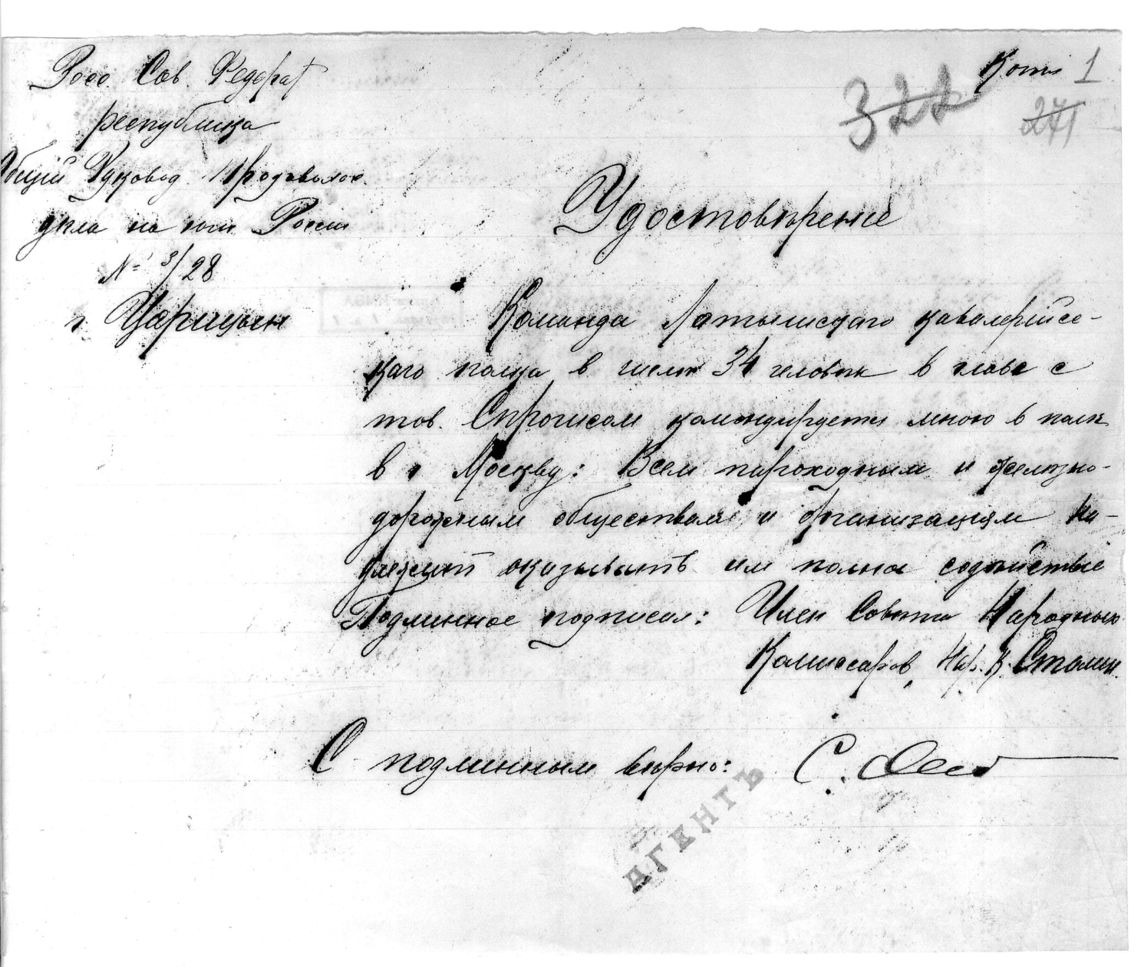 Росс. Сов. Федерат
республика
Общий Руковод. Продовольст.
дѣла на юге России
№ 3/28
г. Царицын
Копия 1
322
271
Удостовѣрение
Команда Латышскаго кавалерийс-
каго полка в числѣ 34 человѣк в главе с
тов. Спрогисом командируется мною в полк
в г. Москву: Всем пароходным и желѣзно-
дорожным обществам и организациям на-
длежит оказывать им полное содѣйствие
Подлинное подписал: Член Совѣта Народных
Комиссаров, Нар. К. Сталин.
С подлинным вѣрно: С.
АГЕНТЪ